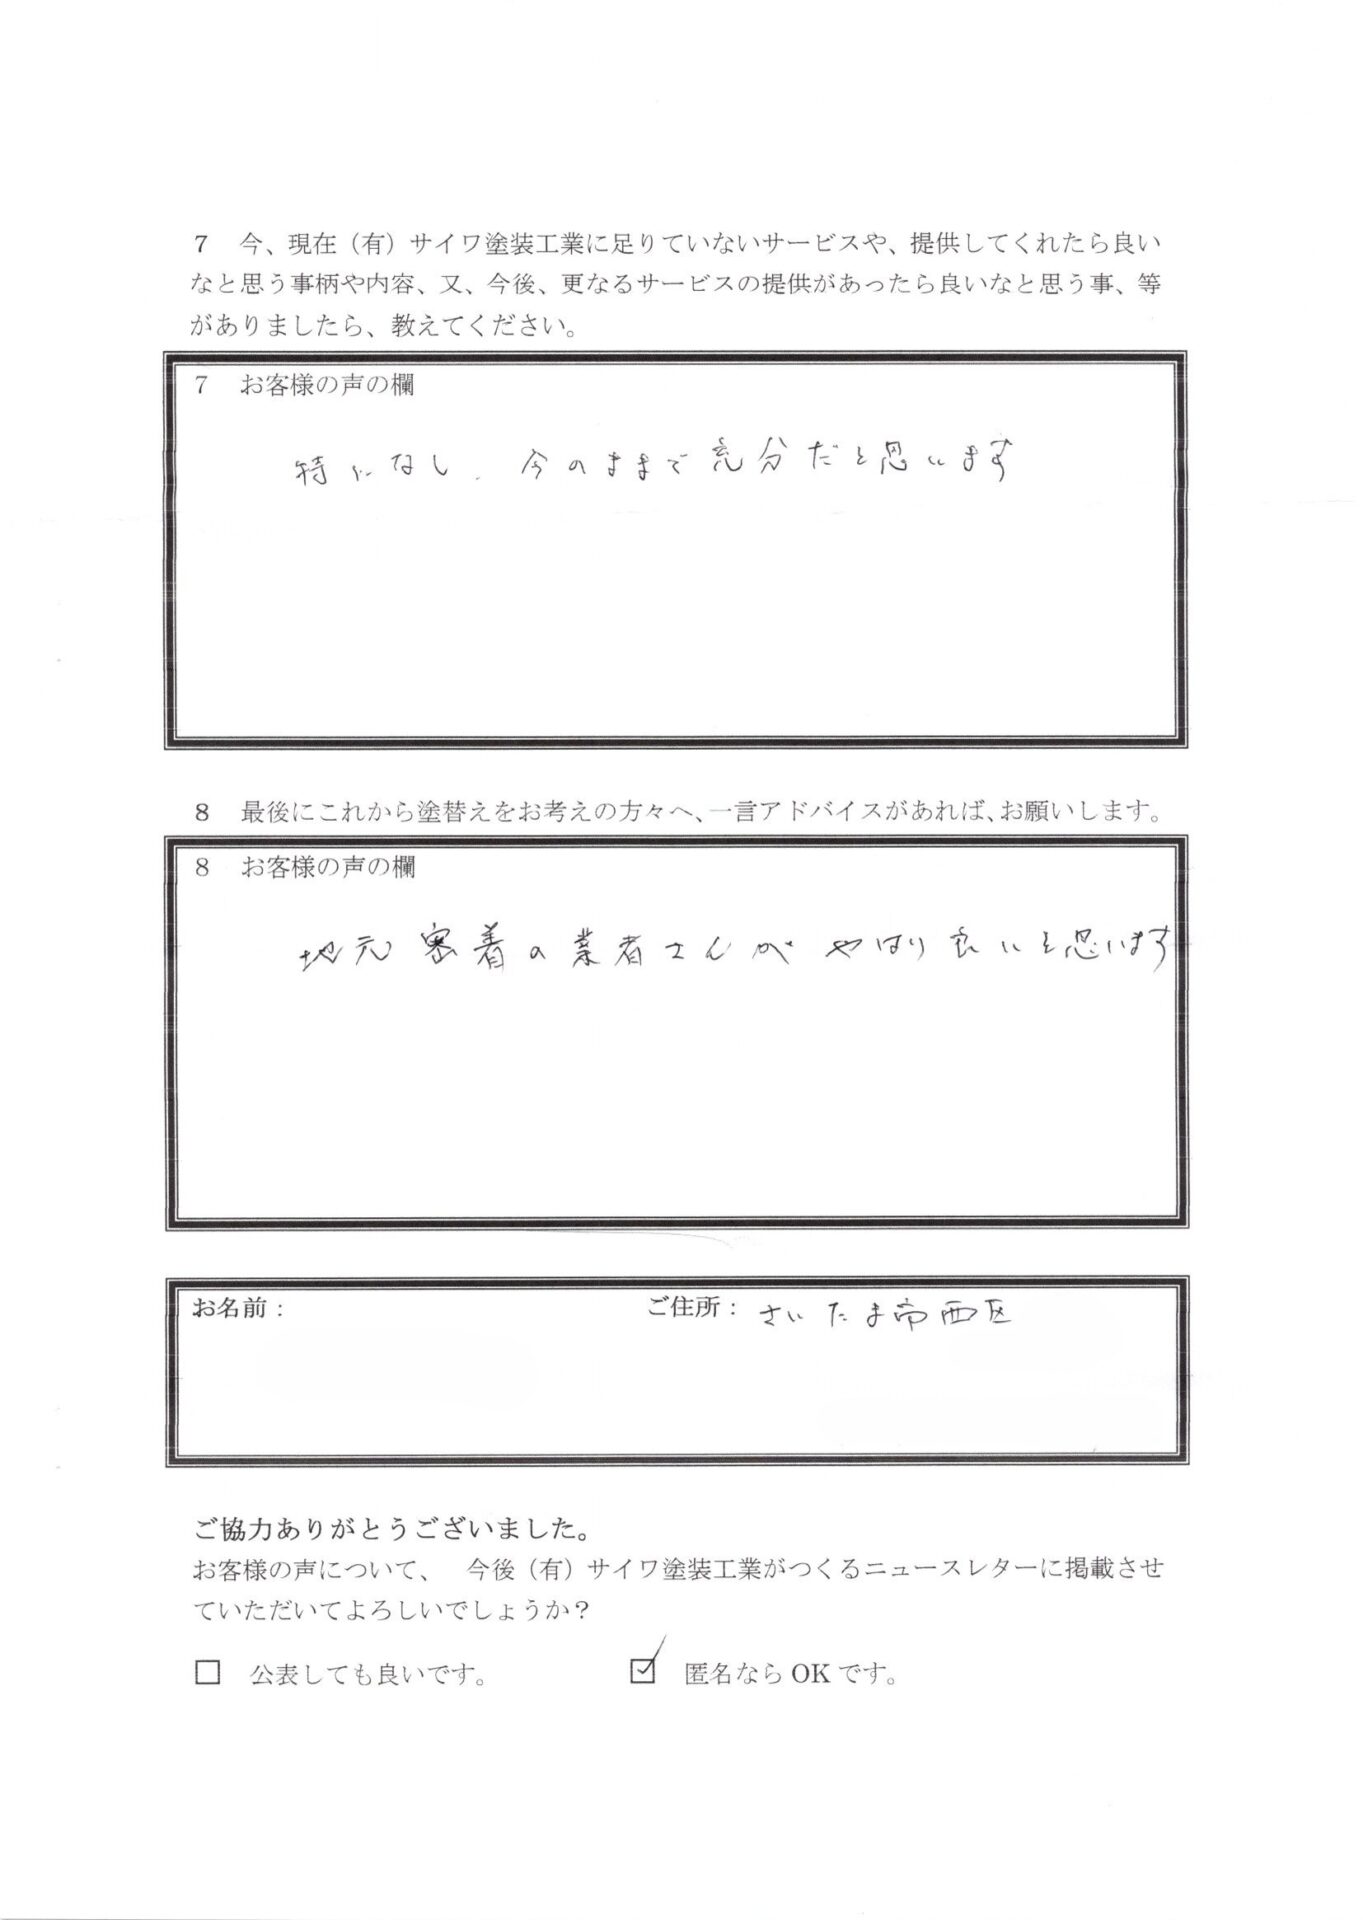 7　今、現在（有）サイワ塗装工業に足りていないサービスや、提供してくれたら良い
なと思う事柄や内容、又、今後、更なるサービスの提供があったら良いなと思う事、等
がありましたら、教えてください。
7　お客様の声の欄
特になし、今のままで充分だと思います
8　最後にこれから塗替えをお考えの方々へ、一言アドバイスがあれば、お願いします。
8　お客様の声の欄
地元密着の業者さんが やはり良いと思います
お名前：
ご住所：さいたま市西区
ご協力ありがとうございました。
お客様の声について、　今後（有）サイワ塗装工業がつくるニュースレターに掲載させ
ていただいてよろしいでしょうか？
□　公表しても良いです。　☑　匿名なら OK です。